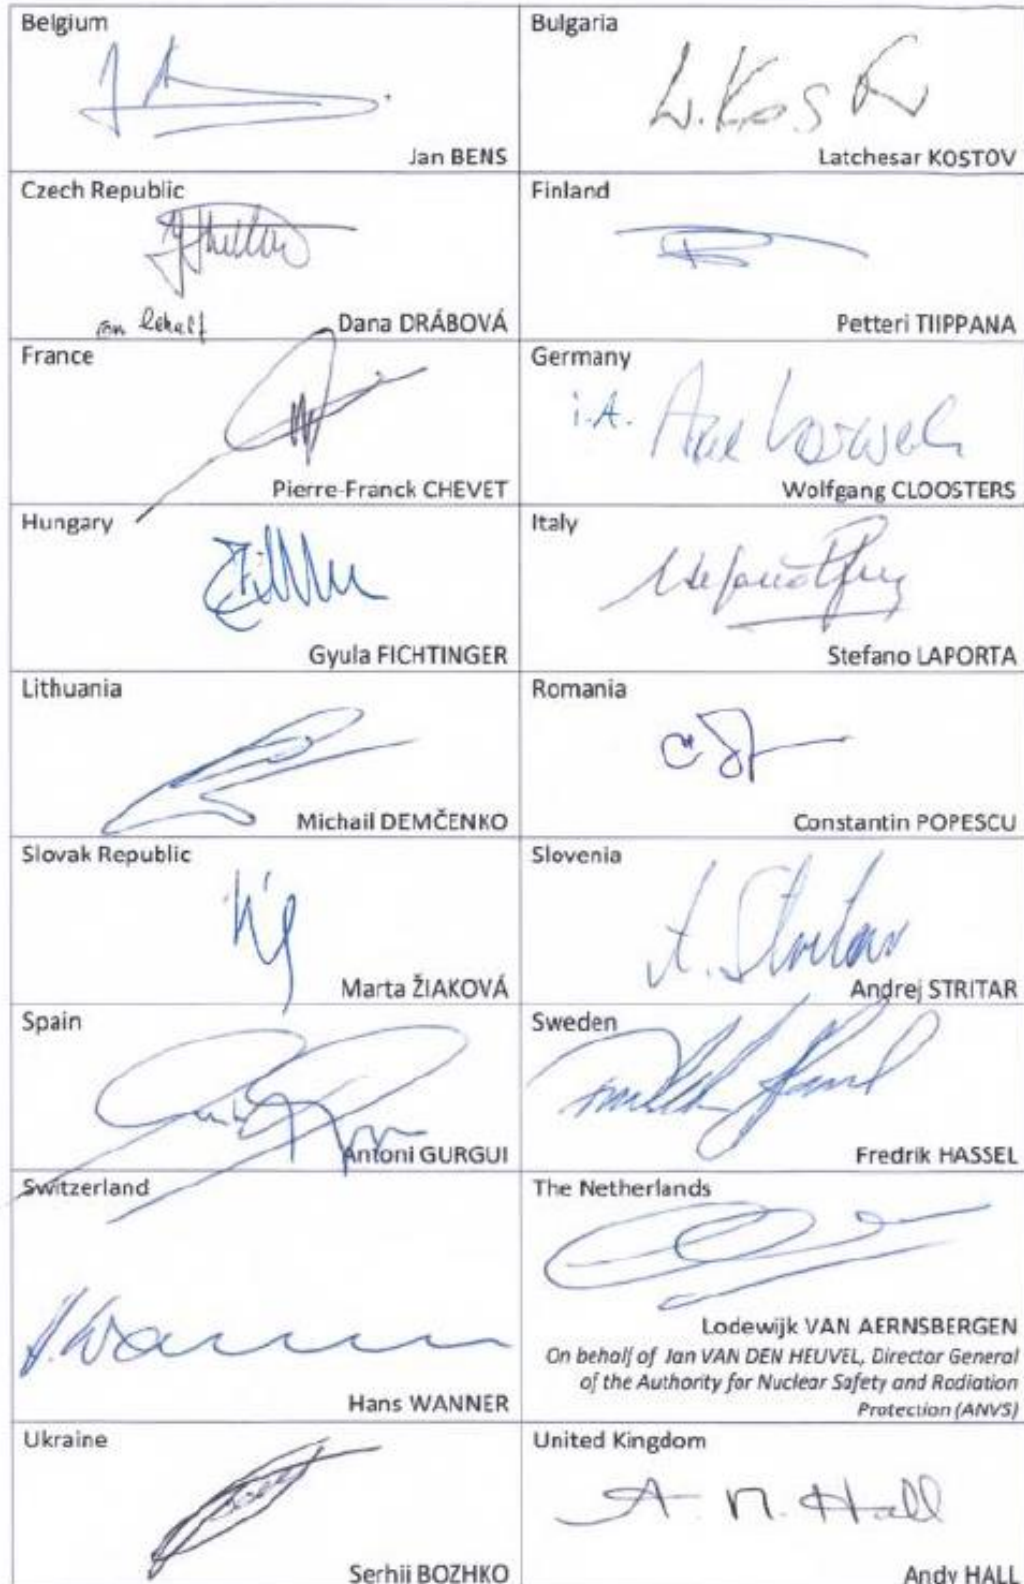 Belgium
Jan BENS
Bulgaria
L. Kostov
Latchesar KOSTOV
Czech Republic
on behalf
Dana DRÁBOVÁ
Finland
Petteri TIIPPANA
France
Pierre-Franck CHEVET
Germany
i.A.
Wolfgang CLOOSTERS
Hungary
Gyula FICHTINGER
Italy
Stefano LAPORTA
Lithuania
Michail DEMČENKO
Romania
Constantin POPESCU
Slovak Republic
Marta ŽIAKOVÁ
Slovenia
A. Stritar
Andrej STRITAR
Spain
Antoni GURGUI
Sweden
Fredrik HASSEL
Switzerland
H. Wanner
Hans WANNER
The Netherlands
Lodewijk VAN AERNSBERGEN
On behalf of Jan VAN DEN HEUVEL, Director General
of the Authority for Nuclear Safety and Radiation
Protection (ANVS)
Ukraine
Serhii BOZHKO
United Kingdom
A. N. Hall
Andy HALL